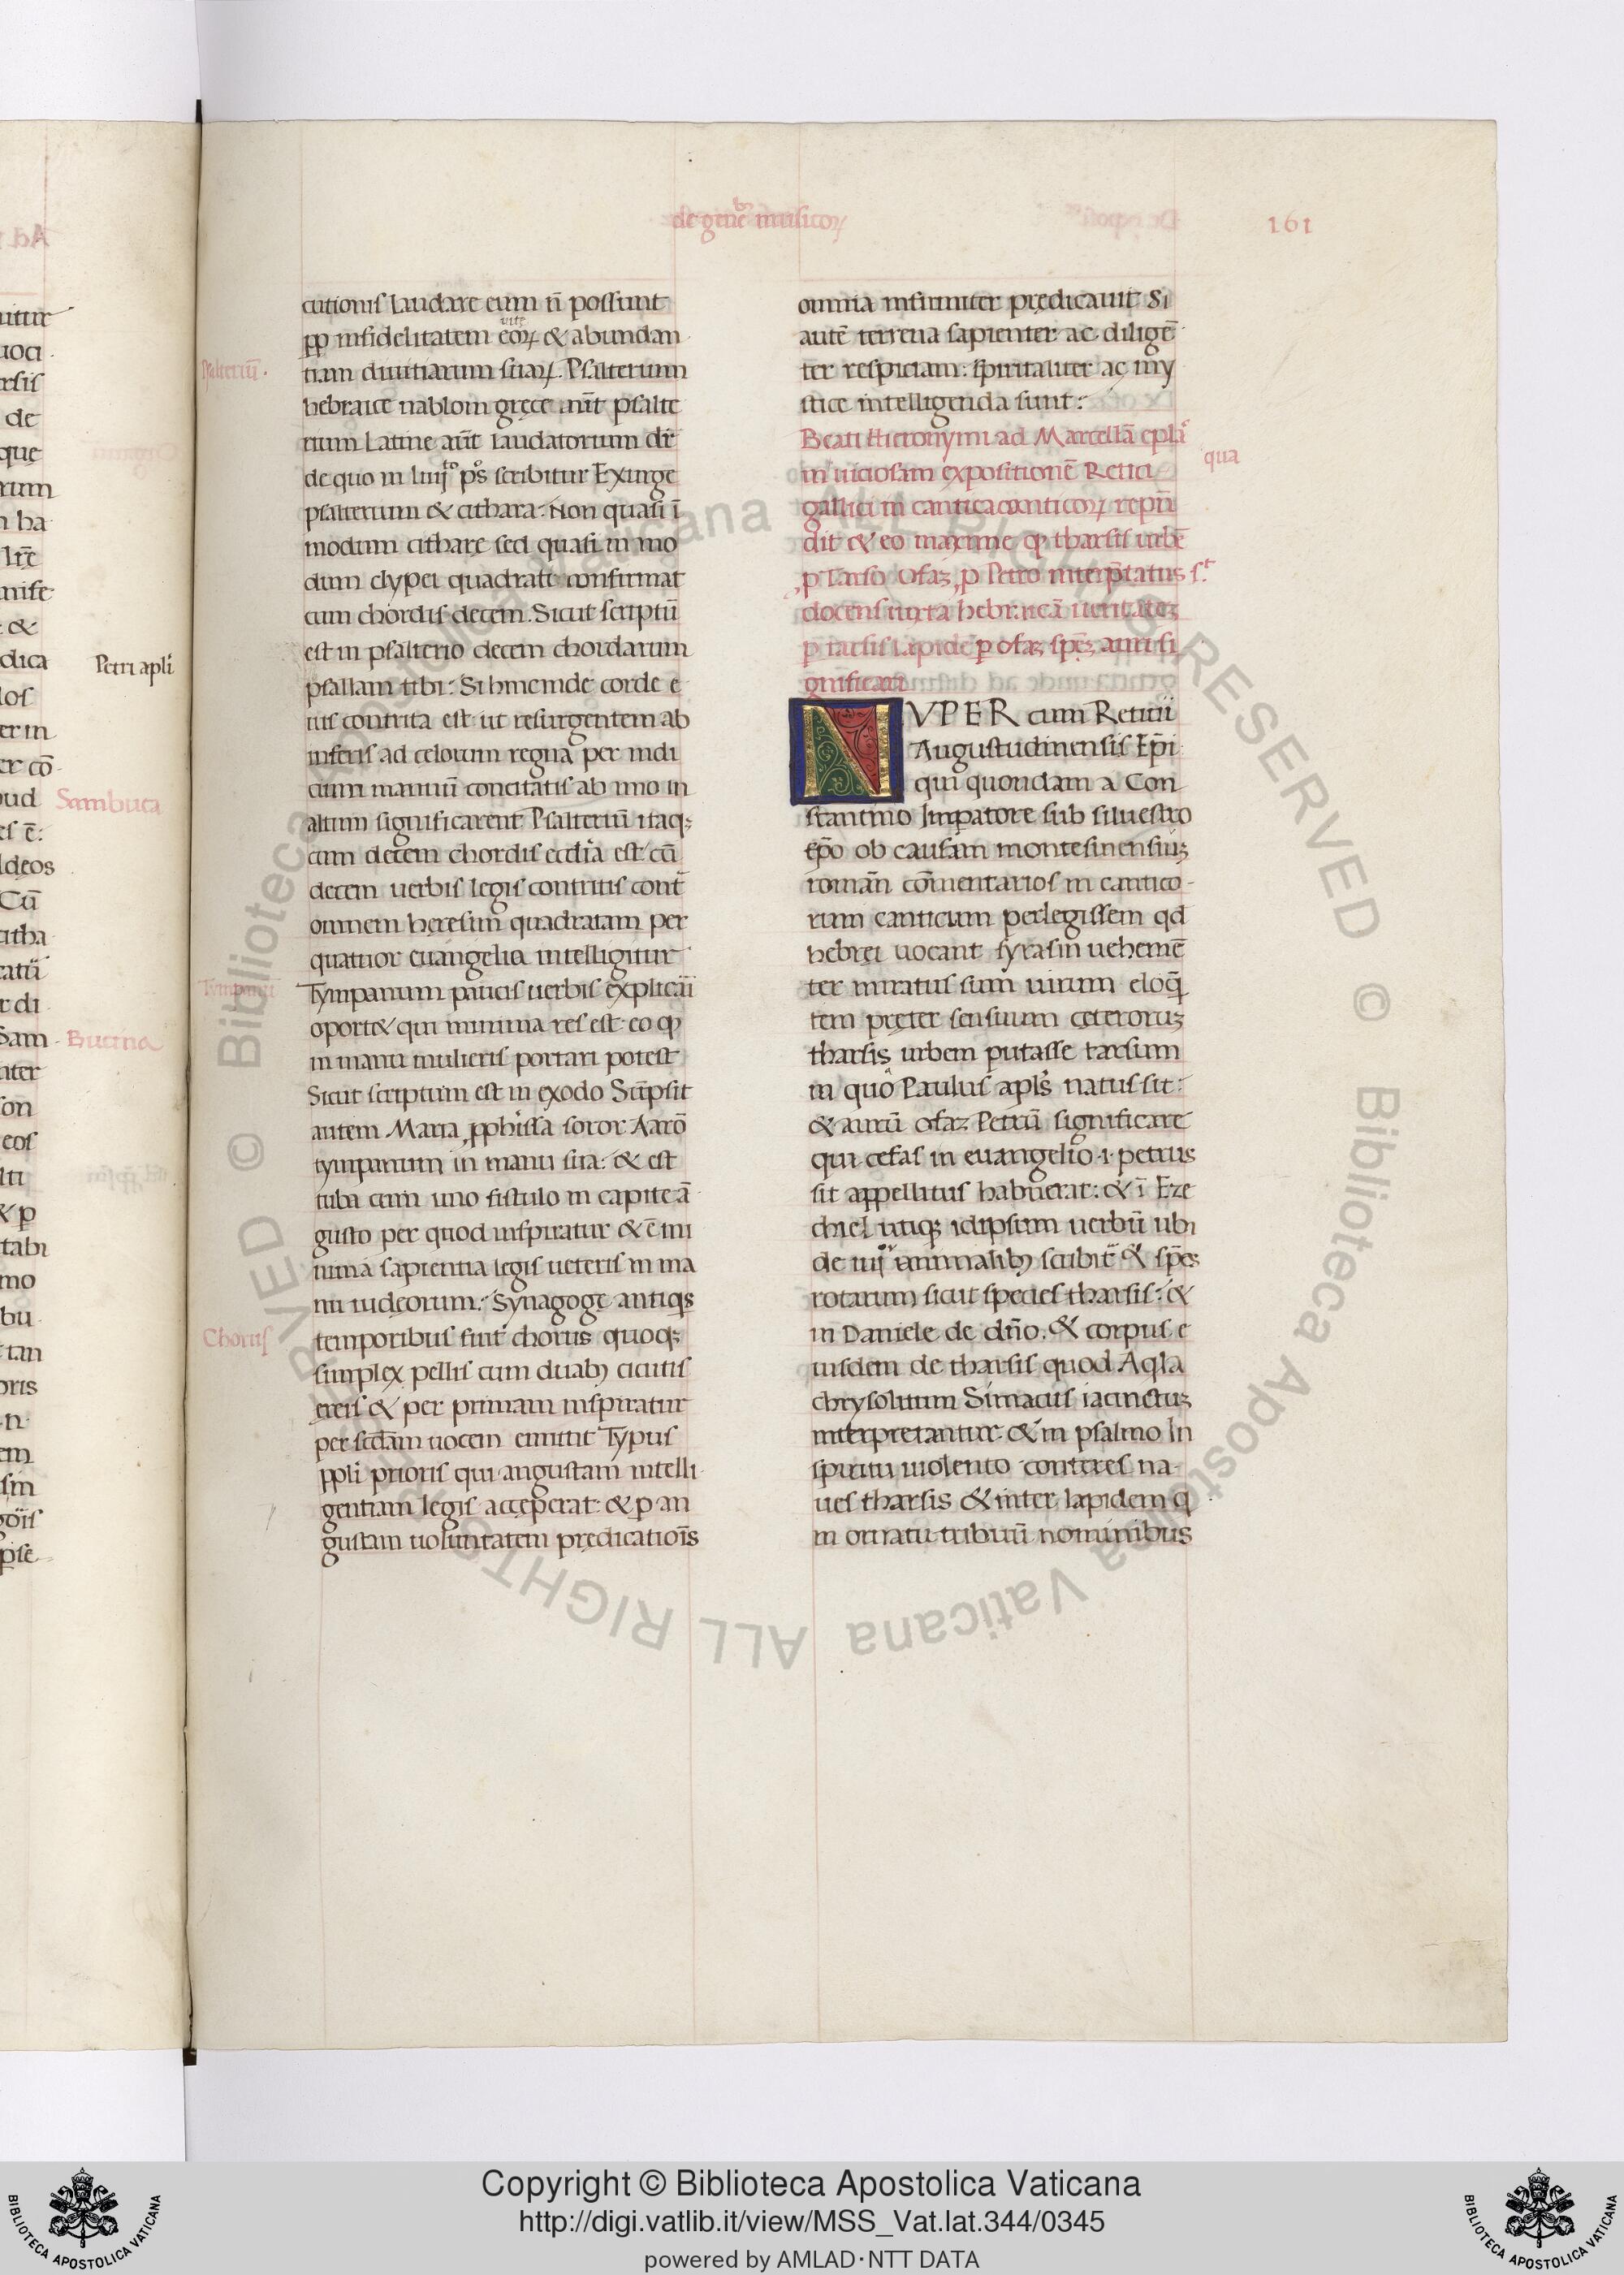 de gene᷒b musicoꝝ
161
cutionis laudare eum ñ possunt
ꝓp infidelitatem eoꝝ & abundan
vite
tiam diuitiarum suaꝝ. Psalterium
Psalteriū.
hebraice nablom gręce aut̄ psalte
rium Latine aut̄ laudatorium dr̄
de quo in liiij.to ps̄ scribitur Exurge
psalterium & cithara: Non quasi ī
modum citharę sed quasi in mo
dum clypei quadrati confirmat
cum chordis decem. Sicut scriptū
est in psalterio decem chordarum
psallam tibi: Si hinc inde corde e
ius contrita est ut resurgentem ab
inferis ad celorum regna per indi
cium manuū concitatis ab imo in
altum significarent. Psalteriū itaqꝫ
cum decem chordis ecclīa est cū
decem uerbis legis contritis cont̄
omnem heresim quadratam per
quatuor euangelia intelligitur
Tympanum paucis uerbis explicari
Tympanū
oport& qui minima res est eo ꝙ
in manu mulieris portari potest
Sicut scriptum est in exodo Sūpsit
autem Maria ꝓphissa soror Aarō
tympanum in manu sua: & est
tuba cum uno fistulo in capite ā
gusto per quod inspiratur & ē mi
nima sapientia legis ueteris in ma
nu iudęorum: Synagogę antiqs
temporibus fuit chorus quoqꝫ
Chorus
simplex pellis cum duabꝫ cicutis
ęreis & per primam inspiratur
per scdam uocem emittit Typus
ppli prioris qui angustam intelli
gentiam legis acceperat: & p an
gustam uoluntatem prędicatiōis
omnia infirmiter prędicauit Si
autē terrena sapienter ac diligē
ter respiciam: spiritaliter ac my
stice intelligenda sunt:
Beati Hieronymi ad Marcellā epla
in uiciosam expositionē Retici
qua
gallici in cantica canticoꝝ repn̄
dit & eo maxime ꝙ tharsis urbē
ꝓ Tarso Ofaz ꝓ Petro interp̄tatus s.t
docens iuxta hebraicā ueritateꝫ
p tarsis lapidē p ofaz spēꝫ auri si
gnificari
NVPER cum Reticii
Augustudinensis Ep̄i
qui quondam a Con
stantino Imꝑatore sub siluestro
ep̄o ob causam montesinensiuꝫ
romān cōmentarios in cantico
rum canticum perlegissem qd
hebręi uocant syrasin uehemē
ter miratus sum uirum eloq̄
tem pręter sensuum cęteroruꝫ
tharsis urbem putasse tarsum
in quo Paulus apls̄ natus sit:
& aurū ofaz Petrū significare
qui cefas in euangelio .i. petrus
sit appellatus habuerat: & ī Eze
chiel utiqꝫ idipsum uerbū ubi
de iiij.or animalibꝫ scribit̄ & spēs
rotarum sicut species tharsis: &
in Daniele de dño. & corpus e
iusdem de tharsis quod Aqla
chrysolitum Simacus iacinctuꝫ
interpretantur & in psalmo In
spiritu uiolento conteres na
ues tharsis & inter lapidem q̄
in ornatu tribuū nominibus
uitur
uoci
ersis
de
que
rum
ha
lrē
nife
&
dica
Petri apli
los
er in
er cō
ud
Sambuca
ldeos
Cū
citha
r di
Sam
Bucina
nter
eos
lti
& p
tabi
mo
bu
tan
oris
em
pse
Copyright © Biblioteca Apostolica Vaticana
http://digi.vatlib.it/view/MSS_Vat.lat.344/0345
powered by AMLAD·NTT DATA
BIBLIOTECA APOSTOLICA VATICANA
BIBLIOTECA APOSTOLICA VATICANA
© Biblioteca Apostolica Vaticana ALL RIGHTS RESERVED © Biblioteca Apostolica Vaticana ALL RIGHTS RESERVED